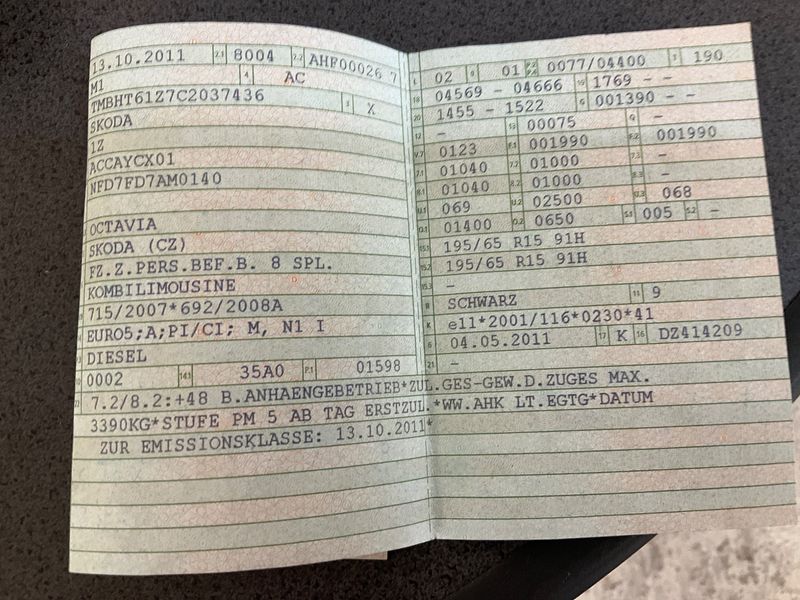 13.10.2011 2.1 8004 2.2 AHF00026 7
M1 4 AC
TMBHT61Z7C2037436 3 X
SKODA
1Z
ACCAYCX01
NFD7FD7AM0140
OCTAVIA
SKODA (CZ)
FZ.Z.PERS.BEF.B. 8 SPL.
KOMBILIMOUSINE
715/2007*692/2008A
EURO5;A;PI/CI; M, N1 I
DIESEL
10 0002 14.1 35A0 P.1 01598
L 02 9 01 P.2 P.4 0077/04400 T 190
18 04569 - 04666 19 1769 - -
20 1455 - 1522 G 001390 - -
12 - 13 00075 Q -
V.7 0123 F.1 001990 F.2 001990
7.1 01040 7.2 01000 7.3 -
8.1 01040 8.2 01000 8.3 -
U.1 069 U.2 02500 U.3 068
O.1 01400 O.2 0650 S.1 005 S.2 -
15.1 195/65 R15 91H
15.2 195/65 R15 91H
15.3 -
R SCHWARZ 11 9
K e11*2001/116*0230*41
6 04.05.2011 17 K 16 DZ414209
21 -
22 7.2/8.2:+48 B.ANHAENGEBETRIEB*ZUL.GES-GEW.D.ZUGES MAX.
3390KG*STUFE PM 5 AB TAG ERSTZUL.*WW.AHK LT.EGTG*DATUM
ZUR EMISSIONSKLASSE: 13.10.2011*